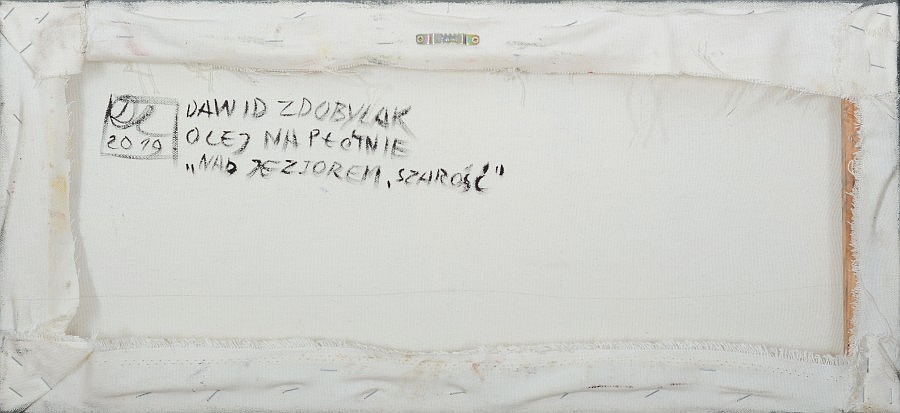 DAWID ZDOBYLAK
2019 OLEJ NA PŁÓTNIE
„NAD JEZIOREM, SZAROŚĆ"